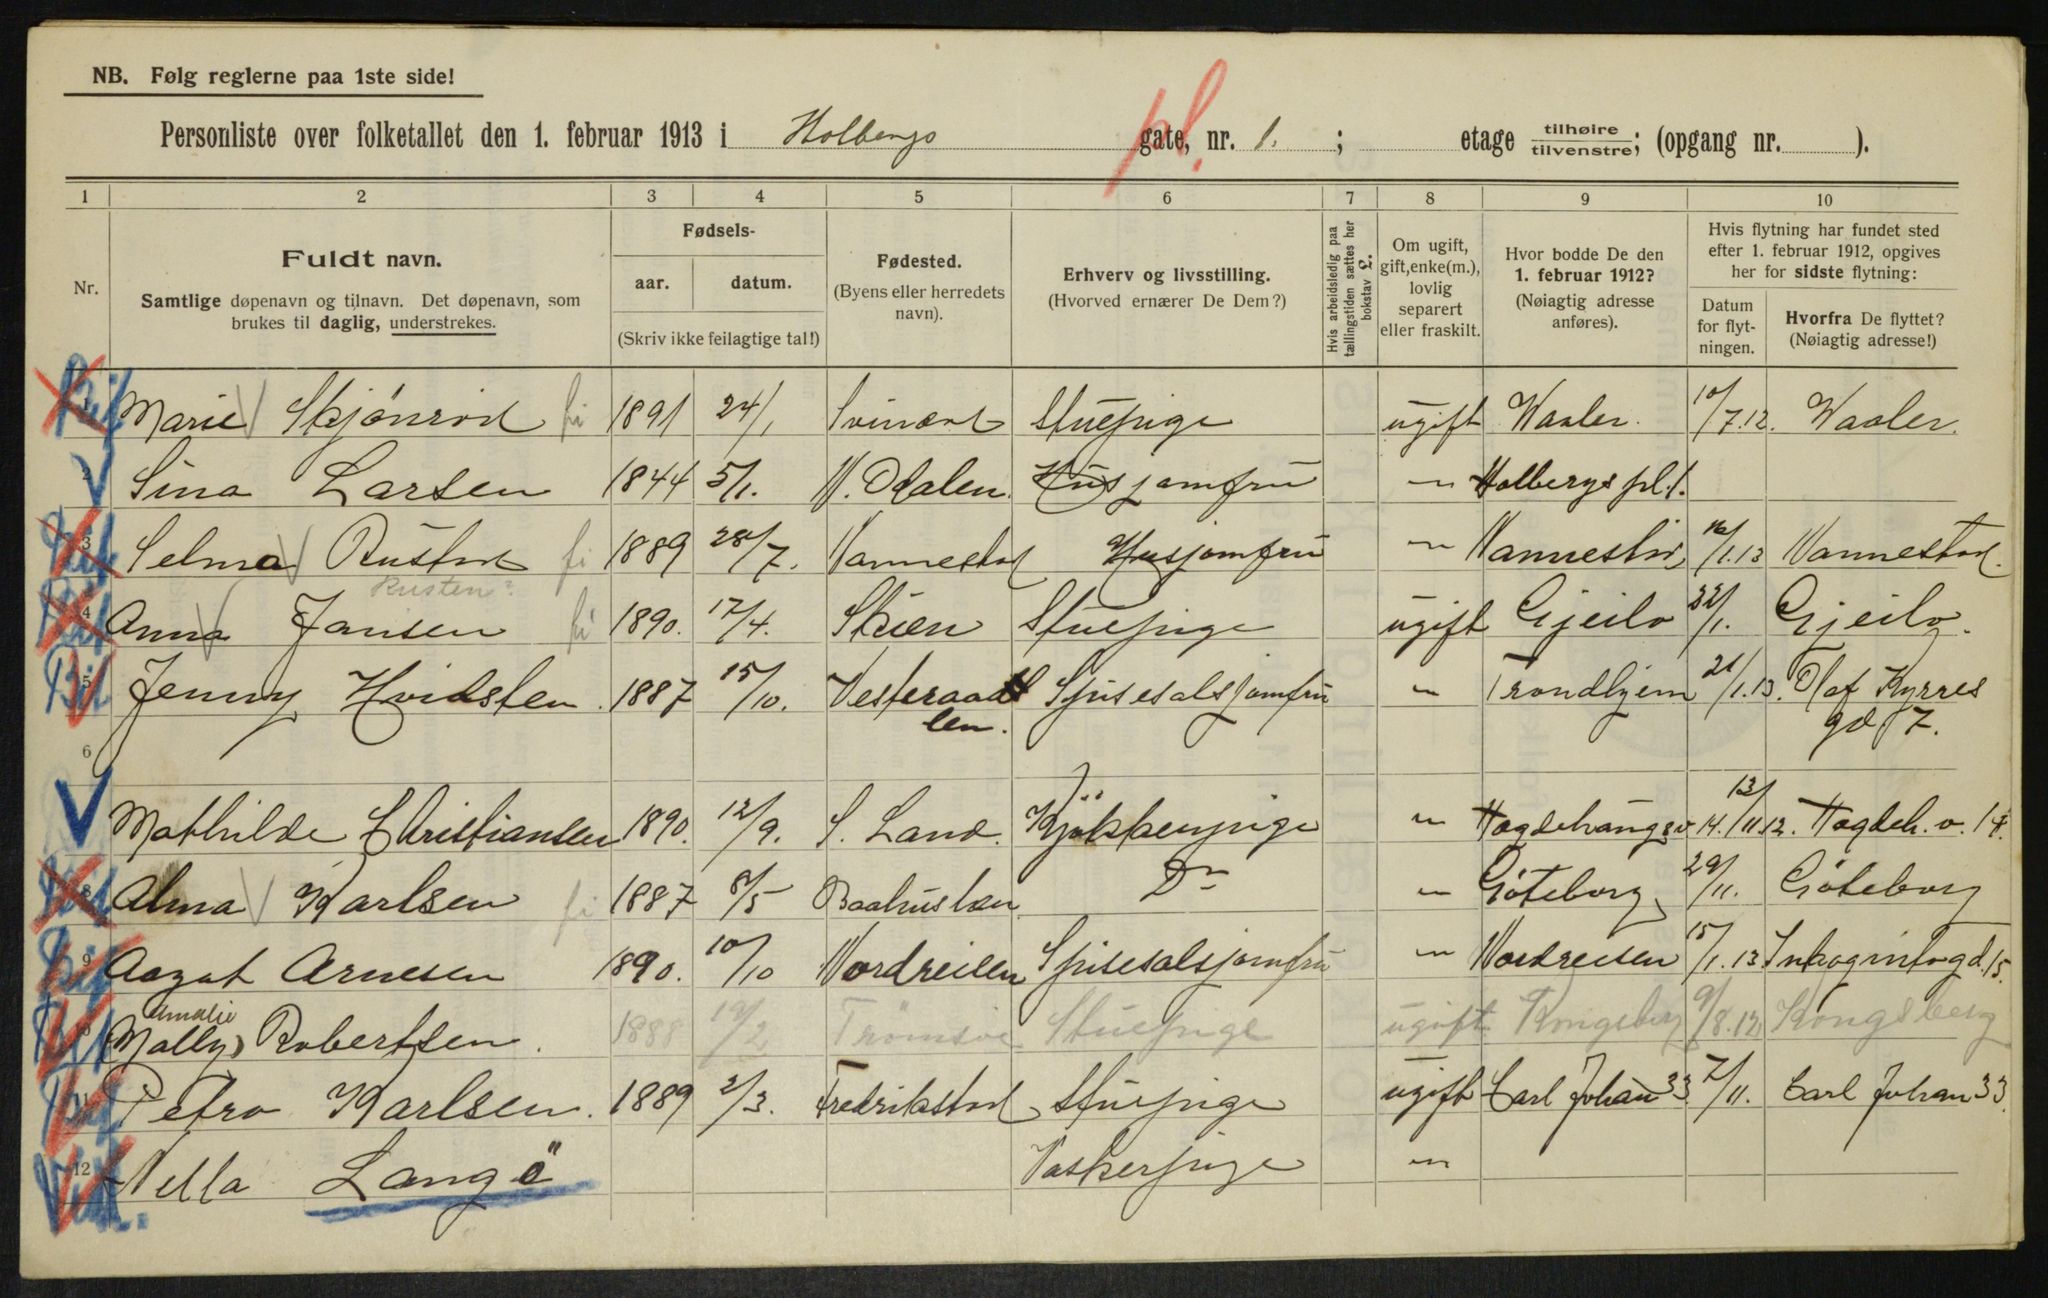 NB. Følg reglerne paa 1ste side!
Personliste over folketallet den 1. februar 1913 i Holbergs gate, nr. 1. ; etage tilhøire tilvenstre; (opgang nr. ).
pl.
1 2 3 4 5 6 7 8 9 10
Nr.
Fuldt navn.
Samtlige døpenavn og tilnavn. Det døpenavn, som
brukes til daglig, understrekes.
Fødsels-
aar. datum.
(Skriv ikke feilagtige tal!)
Fødested.
(Byens eller herredets
navn).
Erhverv og livsstilling.
(Hvorved ernærer De Dem?)
Hvis arbeidsledig paa
tællingstiden sættes her
bokstav L.
Om ugift,
gift, enke(m.),
lovlig
separert
eller fraskilt.
Hvor bodde De den
1. februar 1912?
(Nøiagtig adresse
anføres).
Hvis flytning har fundet sted
efter 1. februar 1912, opgives
her for sidste flytning:
Datum
for flyt-
ningen.
Hvorfra De flyttet?
(Nøiagtig adresse!)
1 Marie Skjönrod 1891 24/1 Svinöre Stuepige ugift Waaler. 10/7.12. Waaler.
2 Sina Larsen 1844 5/1. N. Odalen Husjomfru " Holbergs pl. 1.
3 Selma Rustad 1889 28/7. Vannestad Husjomfru " Vannestad 16/1.13 Vannestad.
Rusten?
4 Anna Jansen 1890. 17/4. Skien Stuepige ugift Gjeilo 22/1. Gjeilo.
5 Jenny Hvidsten. 1887 15/10. Vesteraad Spisesalsjomfru " Trondhjem 21/1.13. Olaf Kyrres
len. gd. 7.
6
Mathilde Christiansen 1890. 12/9. S. Land. Kjökkenpige " Hægdehaugsv 14. 13/11.12. Hægdeh. v. 14.
8 Alma Karlsen 1887 8/5 Baahuslæn Do " Göteborg 29/11. Göteborg
9 Aagot Arnesen 1890. 10/10 Nordreisen Spisesalsjomfru " Nordreisen 15/1.13 Inkognitogd. 15.
Amalie
10 (Mally) Robertsen. 1888 19/2 Tromsöe Stuepige ugift Kongsberg 9/8.12 Kongsberg
11 Petra Karlsen. 1889 2/3. Fredrikstad Stuepige ugift Carl Johan 33 7/11. Carl Johan 33.
12 Nella Langö Vaskerpige "